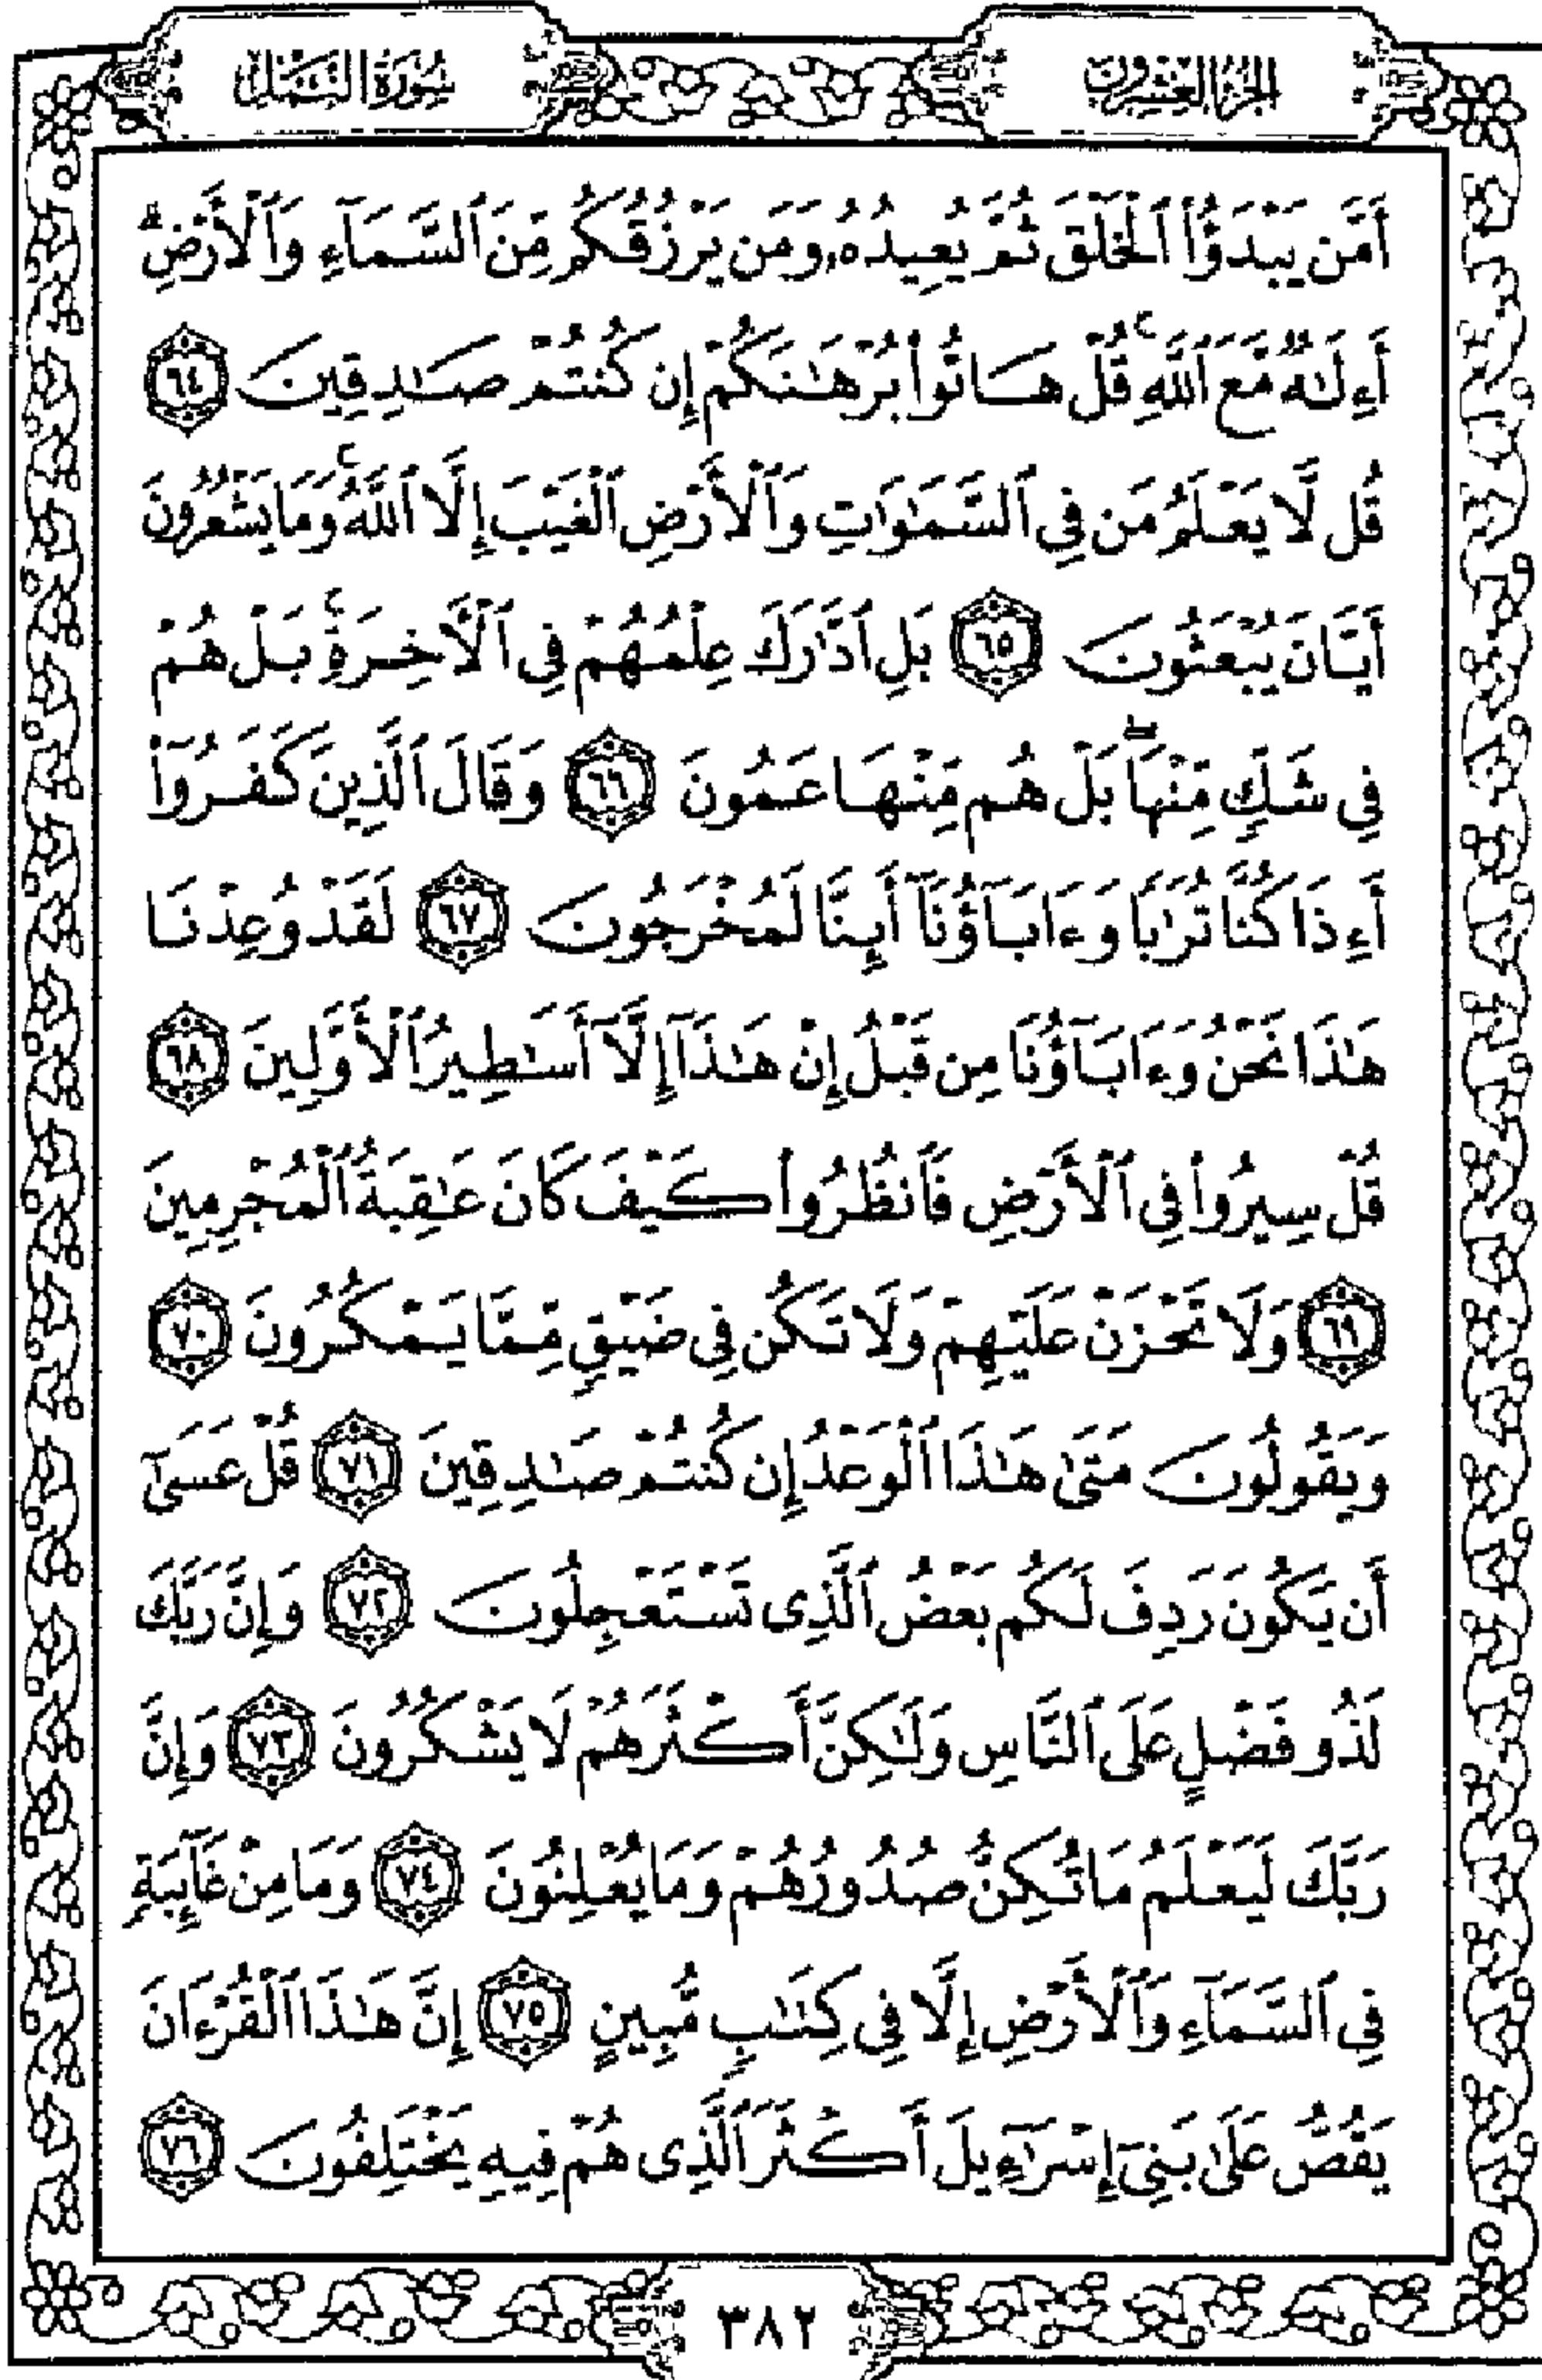 الجزء العشرون
سورة النمل
أَمَّن يَبْدَؤُا۟ ٱلْخَلْقَ ثُمَّ يُعِيدُهُۥ وَمَن يَرْزُقُكُم مِّنَ ٱلسَّمَآءِ وَٱلْأَرْضِ ۗ
أَءِلَـٰهٌ مَّعَ ٱللَّهِ ۚ قُلْ هَاتُوا۟ بُرْهَـٰنَكُمْ إِن كُنتُمْ صَـٰدِقِينَ ٦٤
قُل لَّا يَعْلَمُ مَن فِى ٱلسَّمَـٰوَٰتِ وَٱلْأَرْضِ ٱلْغَيْبَ إِلَّا ٱللَّهُ ۚ وَمَا يَشْعُرُونَ
أَيَّانَ يُبْعَثُونَ ٦٥ بَلِ ٱدَّٰرَكَ عِلْمُهُمْ فِى ٱلْـَٔاخِرَةِ ۚ بَلْ هُمْ
فِى شَكٍّ مِّنْهَا ۖ بَلْ هُم مِّنْهَا عَمُونَ ٦٦ وَقَالَ ٱلَّذِينَ كَفَرُوٓا۟
أَءِذَا كُنَّا تُرَٰبًا وَءَابَآؤُنَآ أَئِنَّا لَمُخْرَجُونَ ٦٧ لَقَدْ وُعِدْنَا
هَـٰذَا نَحْنُ وَءَابَآؤُنَا مِن قَبْلُ إِنْ هَـٰذَآ إِلَّآ أَسَـٰطِيرُ ٱلْأَوَّلِينَ ٦٨
قُلْ سِيرُوا۟ فِى ٱلْأَرْضِ فَٱنظُرُوا۟ كَيْفَ كَانَ عَـٰقِبَةُ ٱلْمُجْرِمِينَ
٦٩ وَلَا تَحْزَنْ عَلَيْهِمْ وَلَا تَكُن فِى ضَيْقٍ مِّمَّا يَمْكُرُونَ ٧٠
وَيَقُولُونَ مَتَىٰ هَـٰذَا ٱلْوَعْدُ إِن كُنتُمْ صَـٰدِقِينَ ٧١ قُلْ عَسَىٰٓ
أَن يَكُونَ رَدِفَ لَكُم بَعْضُ ٱلَّذِى تَسْتَعْجِلُونَ ٧٢ وَإِنَّ رَبَّكَ
لَذُو فَضْلٍ عَلَى ٱلنَّاسِ وَلَـٰكِنَّ أَكْثَرَهُمْ لَا يَشْكُرُونَ ٧٣ وَإِنَّ
رَبَّكَ لَيَعْلَمُ مَا تُكِنُّ صُدُورُهُمْ وَمَا يُعْلِنُونَ ٧٤ وَمَا مِنْ غَآئِبَةٍ
فِى ٱلسَّمَآءِ وَٱلْأَرْضِ إِلَّا فِى كِتَـٰبٍ مُّبِينٍ ٧٥ إِنَّ هَـٰذَا ٱلْقُرْءَانَ
يَقُصُّ عَلَىٰ بَنِىٓ إِسْرَٰٓءِيلَ أَكْثَرَ ٱلَّذِى هُمْ فِيهِ يَخْتَلِفُونَ ٧٦
٣٨٢